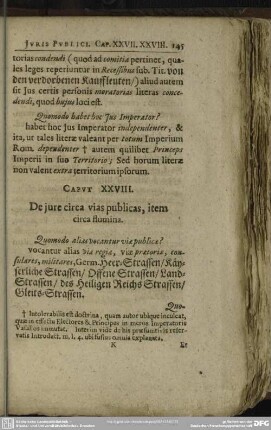 JVRIS PVBLICI. CAP. XXVII. XXVIII. 145
torias condendi (quod ad comitia pertinet, qua-
les leges reperiuntur in Recessibus sub. Tit. von
den verdorbenen Kauffleuten/) aliud autem
sit Jus certis personis moratorias literas conce-
dendi, quod hujus loci est.
Quomodo habet hoc Jus Imperator?
habet hoc Jus Imperator independenter, &
ita, ut tales literæ valeant per totum Imperium
Rom. dependenter † autem quilibet Princeps
Imperii in suo Territorio; Sed horum literæ
non valent extra territorium ipsorum.
CAPVT XXVIII.
De jure circa vias publicas, item
circa flumina.
Quomodo alias vocantur viæ publicæ?
vocantur alias via regia, viæ prætoriæ, con-
sulares, militares, Germ. Heer-Strassen/ Käy-
serliche Strassen/ Offene Strassen/ Land-
Strassen/ des Heiligen Reichs Strassen/
Gleits-Strassen.
Quo-
† Intolerabilis est doctrina, quam autor ubique inculcat,
quasi in effectu Electores & Principes in meros Imperatoris
Vasallos
Interim vide de his præsuntivis reser-
vatis Introduct. m. l. 4. ubi fusius omnia explanata.
K
Et